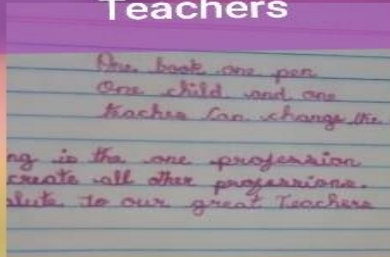 Teachers
One book one pen
One child and one
teacher can change the
ng is the one profession
create all other professions.
alute to our great Teachers